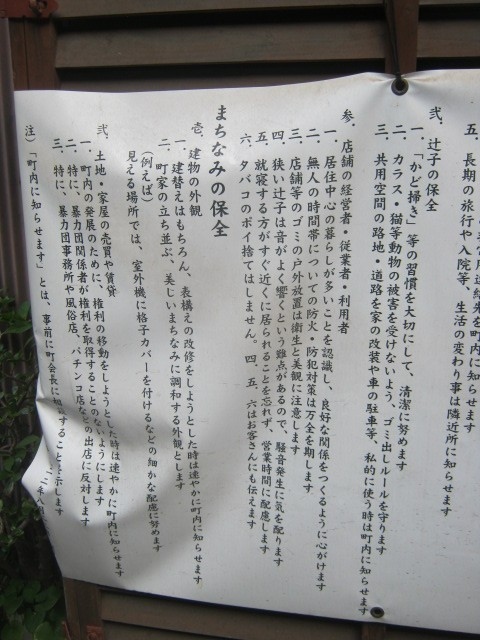 五、長期の旅行や入院等、生活の変わり事は隣近所に知らせます
弐、辻子の保全
一、「かど掃き」等の習慣を大切にして、清潔に努めます
二、カラス・猫等動物の被害を受けないよう、ゴミ出しルールを守ります
三、共用空間の路地・道路を家の改装や車の駐車等、私的に使う時は町内に知らせます
参、店舗の経営者・従業者・利用者
一、居住中心の暮らしが多いことを認識し、良好な関係をつくるように心がけます
二、無人の時間帯についての防火・防犯対策は万全を期します
三、店舗等のゴミの戸外放置は衛生と美観に注意します
四、狭い辻子は音がよく響くという難点があるので、騒音発生に気を配ります
五、就寝する方がすぐ近くに居られることを忘れず、営業時間に配慮します
六、タバコのポイ捨てはしません。四、五、六はお客さんにも伝えます
まちなみの保全
壱、建物の外観
一、建替えはもちろん、表構えの改修をしようとした時は速やかに町内に知らせます
二、町家の立ち並ぶ、美しいまちなみに調和する外観とします
(例えば)
見える場所では、室外機に格子カバーを付けるなどの細かな配慮に努めます
弐、土地・家屋の売買や賃貸
一、町内の発展のために、権利の移動をしようとした時は速やかに町内に知らせます
二、特に、暴力団関係者が権利を取得することのないようにします
三、特に、暴力団事務所や風俗店、パチンコ店などの出店に反対します
注)「町内に知らせます」とは、事前に町会長に することを示します